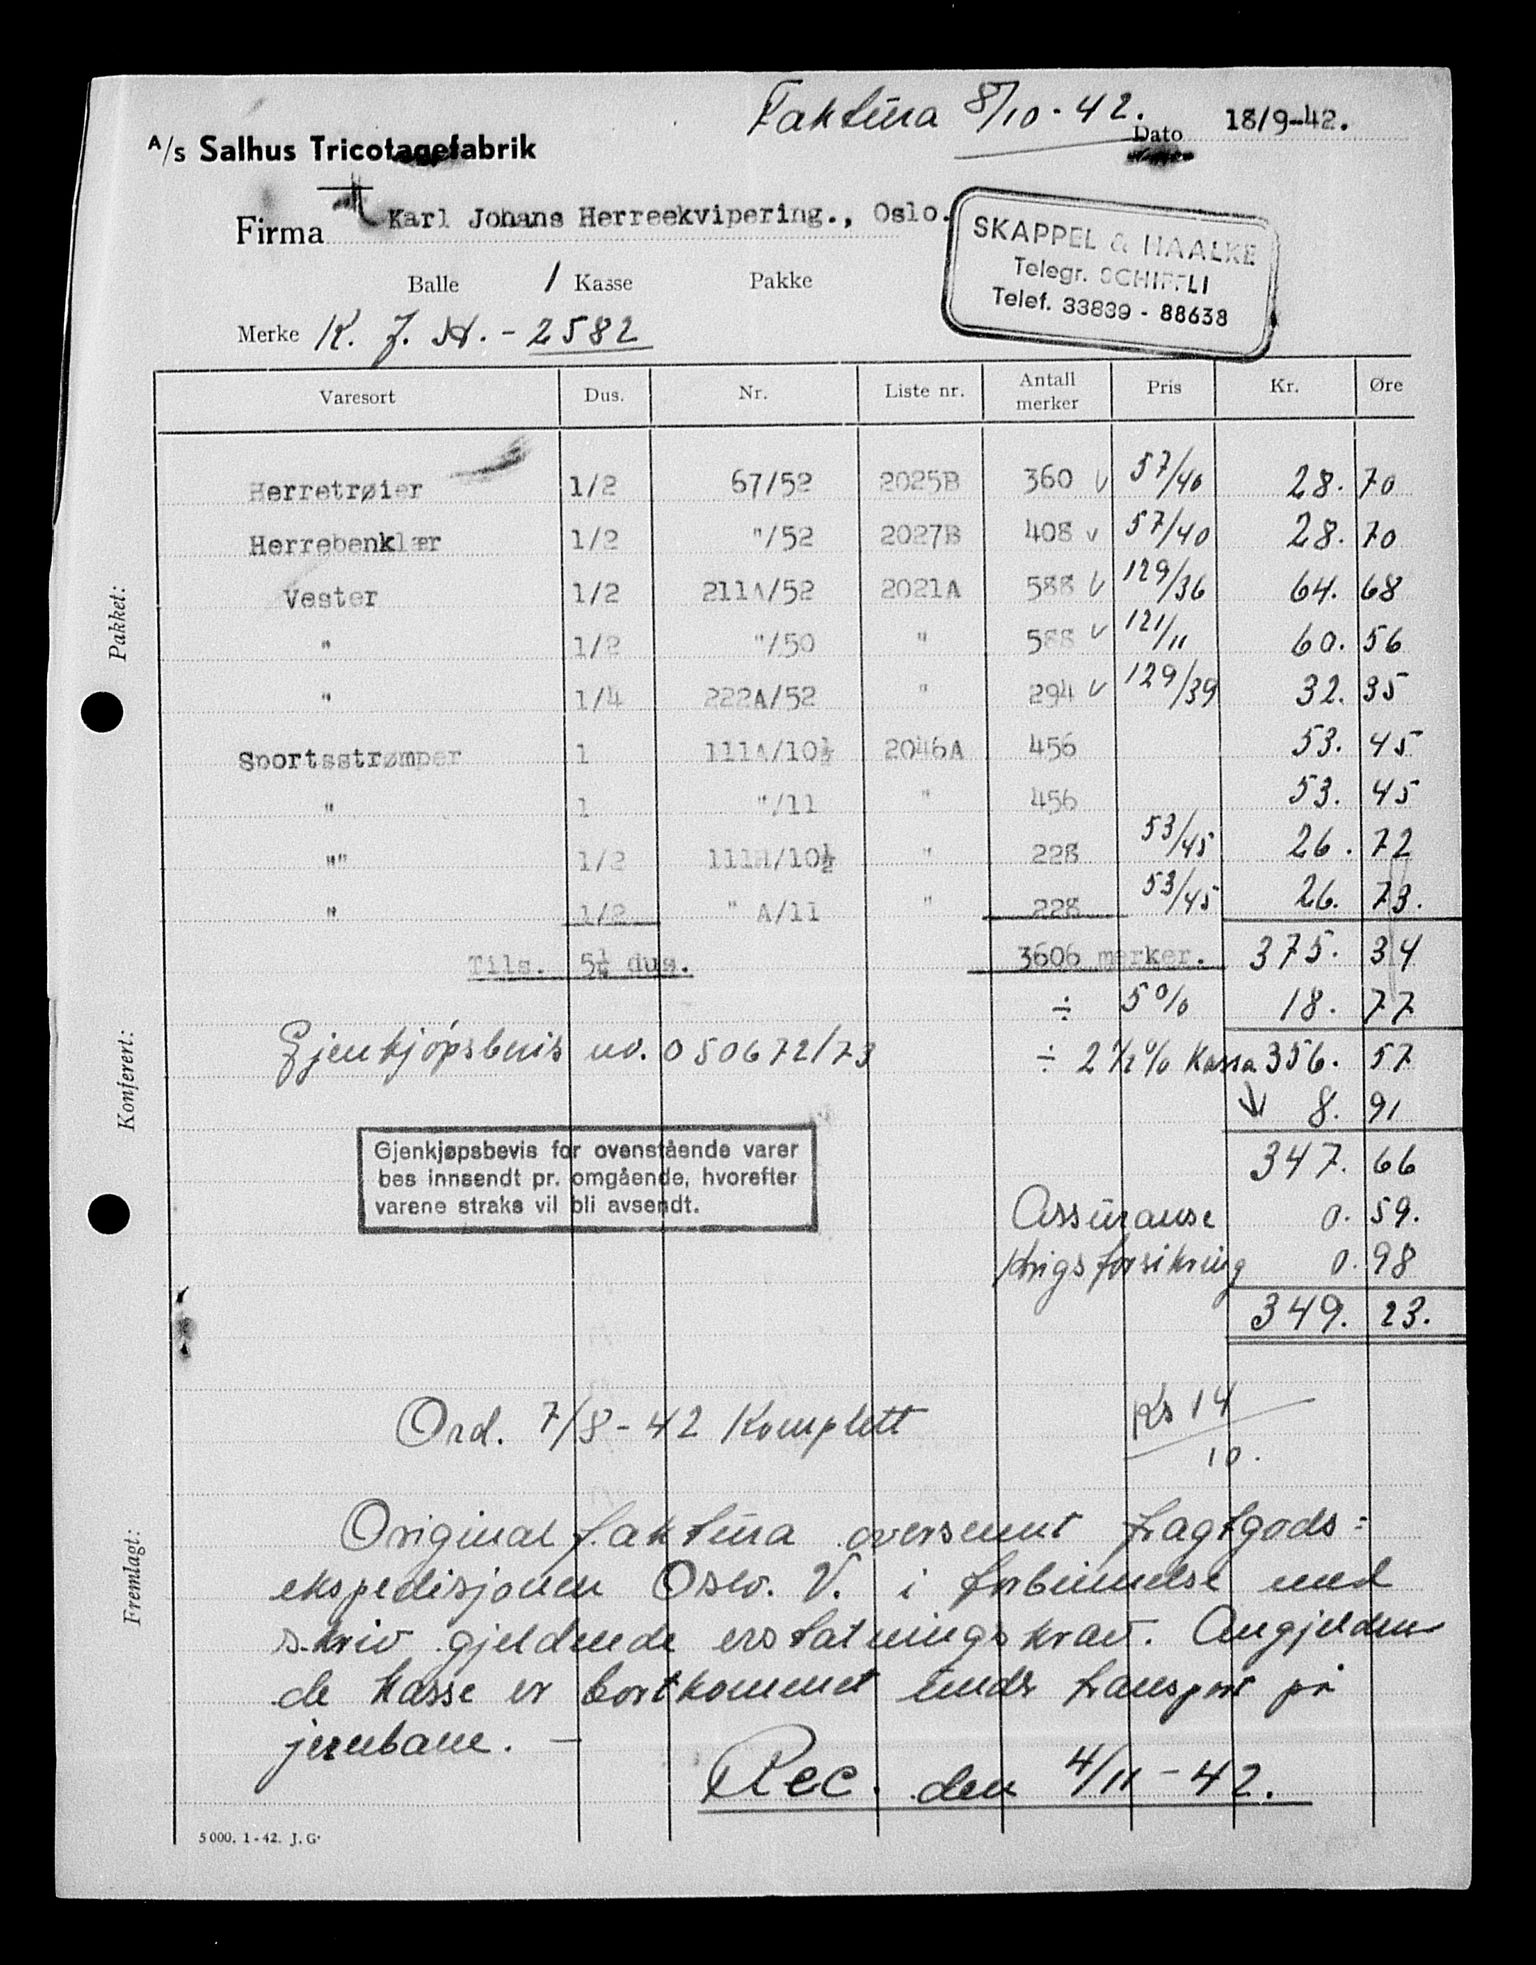 Faktura 8/10-42.
Dato 18/9-42.
A/s Salhus Tricotagefabrik
Firma Karl Johans Herreekvipering., Oslo.
SKAPPEL & HAALKE
Telegr. SCHIFFLI
Telef. 33839 - 88638
Balle / Kasse Pakke
Merke K. J. H. - 2582
Varesort Dus. Nr. Liste nr. Antall merker Pris Kr. Øre
Herretrøier 1/2 67/52 2025B 360 v 57/40 28. 70
Herrebenklær 1/2 "/52 2027B 408 v 57/40 28. 70
Vester 1/2 211A/52 2021A 588 v 129/36 64. 68
" 1/2 "/50 " 588 v 121/11 60. 56
" 1/4 222A/52 " 294 v 129/39 32. 35
Sportsstrømper 1 111A/10½ 2046A 456 53. 45
" 1 "/11 " 456 53. 45
"" 1/2 111H/10½ " 228 53/45 26. 72
" 1/2 " A/11 " 228 53/45 26. 73.
Tils. 5¼ dus. 3606 merker. 375. 34
÷ 5% 18. 77
Gjenkjøpsbevis no. 050672/73 ÷ 2½% Kassa 356. 57
8. 91
Gjenkjøpsbevis for ovenstående varer
bes innsendt pr. omgående, hvorefter
varene straks vil bli avsendt.
347. 66
Assuranse 0. 59.
Krigsforsikring 0. 98
349. 23.
Ord. 7/8-42 Komplett
Ks 14
10.
Original faktura oversennt fragtgods=
ekspedisjonen Oslo. V. i forbinnelse med
skriv gjeldende erstatningskrav. Angjelden
de kasse er bortkommet under transport på
jernbane. —
Rec. den 4/11-42.
5000. 1-42. J. G.
Pakket:
Konferert:
Fremlagt: